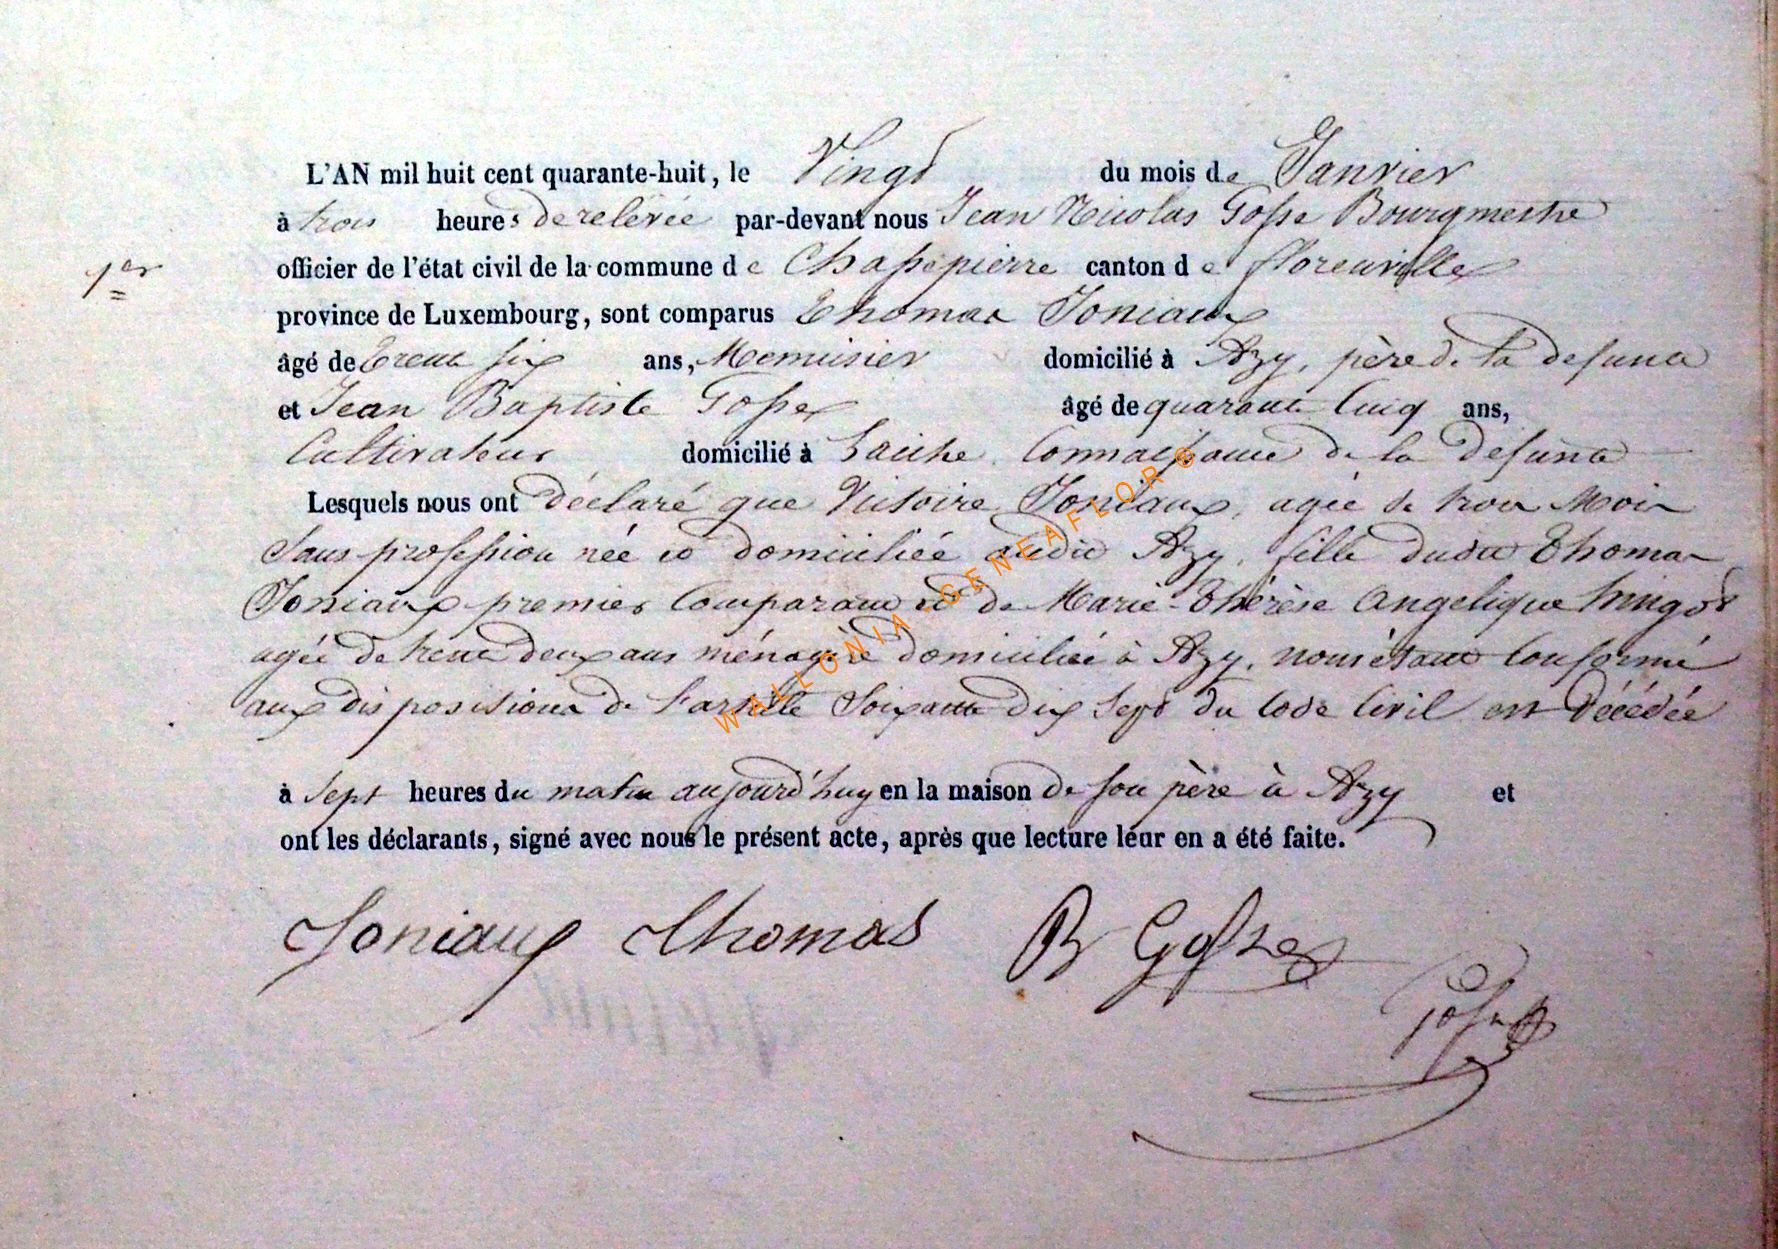 L'AN mil huit cent quarante-huit, le Vingt du mois de Janvier
à trois heures de relevée par-devant nous Jean Nicolas Gosse Bourgmestre
1er officier de l'état civil de la commune de Chassepierre canton de florenville
province de Luxembourg, sont comparus Thomas Joniaux
âgé de trente six ans, Menuisier domicilié à Azy, père de la defunte
et Jean Baptiste Gosse âgé de quarante Cinq ans,
Cultivateur domicilié à Laiche Connaissance de la defunte
Lesquels nous ont déclaré que Victoire Joniaux, agée de trois Mois
Sans profession née et domiciliée audit Azy, fille dudit Thomas
Joniaux premier Comparant et de Marie-Thérèse Angelique
agée de trente deux ans ménagère domiciliée à Azy, nous étant Conformé
aux dispositions de l'article Soixante Dix Sept du Code Civil est Décédée
à Sept heures du matin aujourd'huy en la maison de son père à Azy et
ont les déclarants, signé avec nous le présent acte, après que lecture leur en a été faite.
Joniaux Thomas B Gosse
Gosse
WALLONIA-GENEAFLOR©